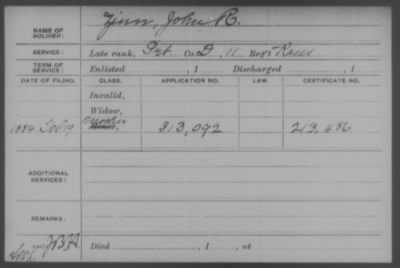 NAME OF SOLDIER: Zinn, John R.
SERVICE: Late rank, Pvt Co. D, 11 Reg't Kans
TERM OF SERVICE: Enlisted , 1 Discharged , 1
DATE OF FILING. CLASS. APPLICATION NO. LAW. CERTIFICATE NO.
Invalid,
Widow,
1884 Feb 19 Mother 313,092 213,486
ADDITIONAL SERVICES:
REMARKS:
Died , 1 , at